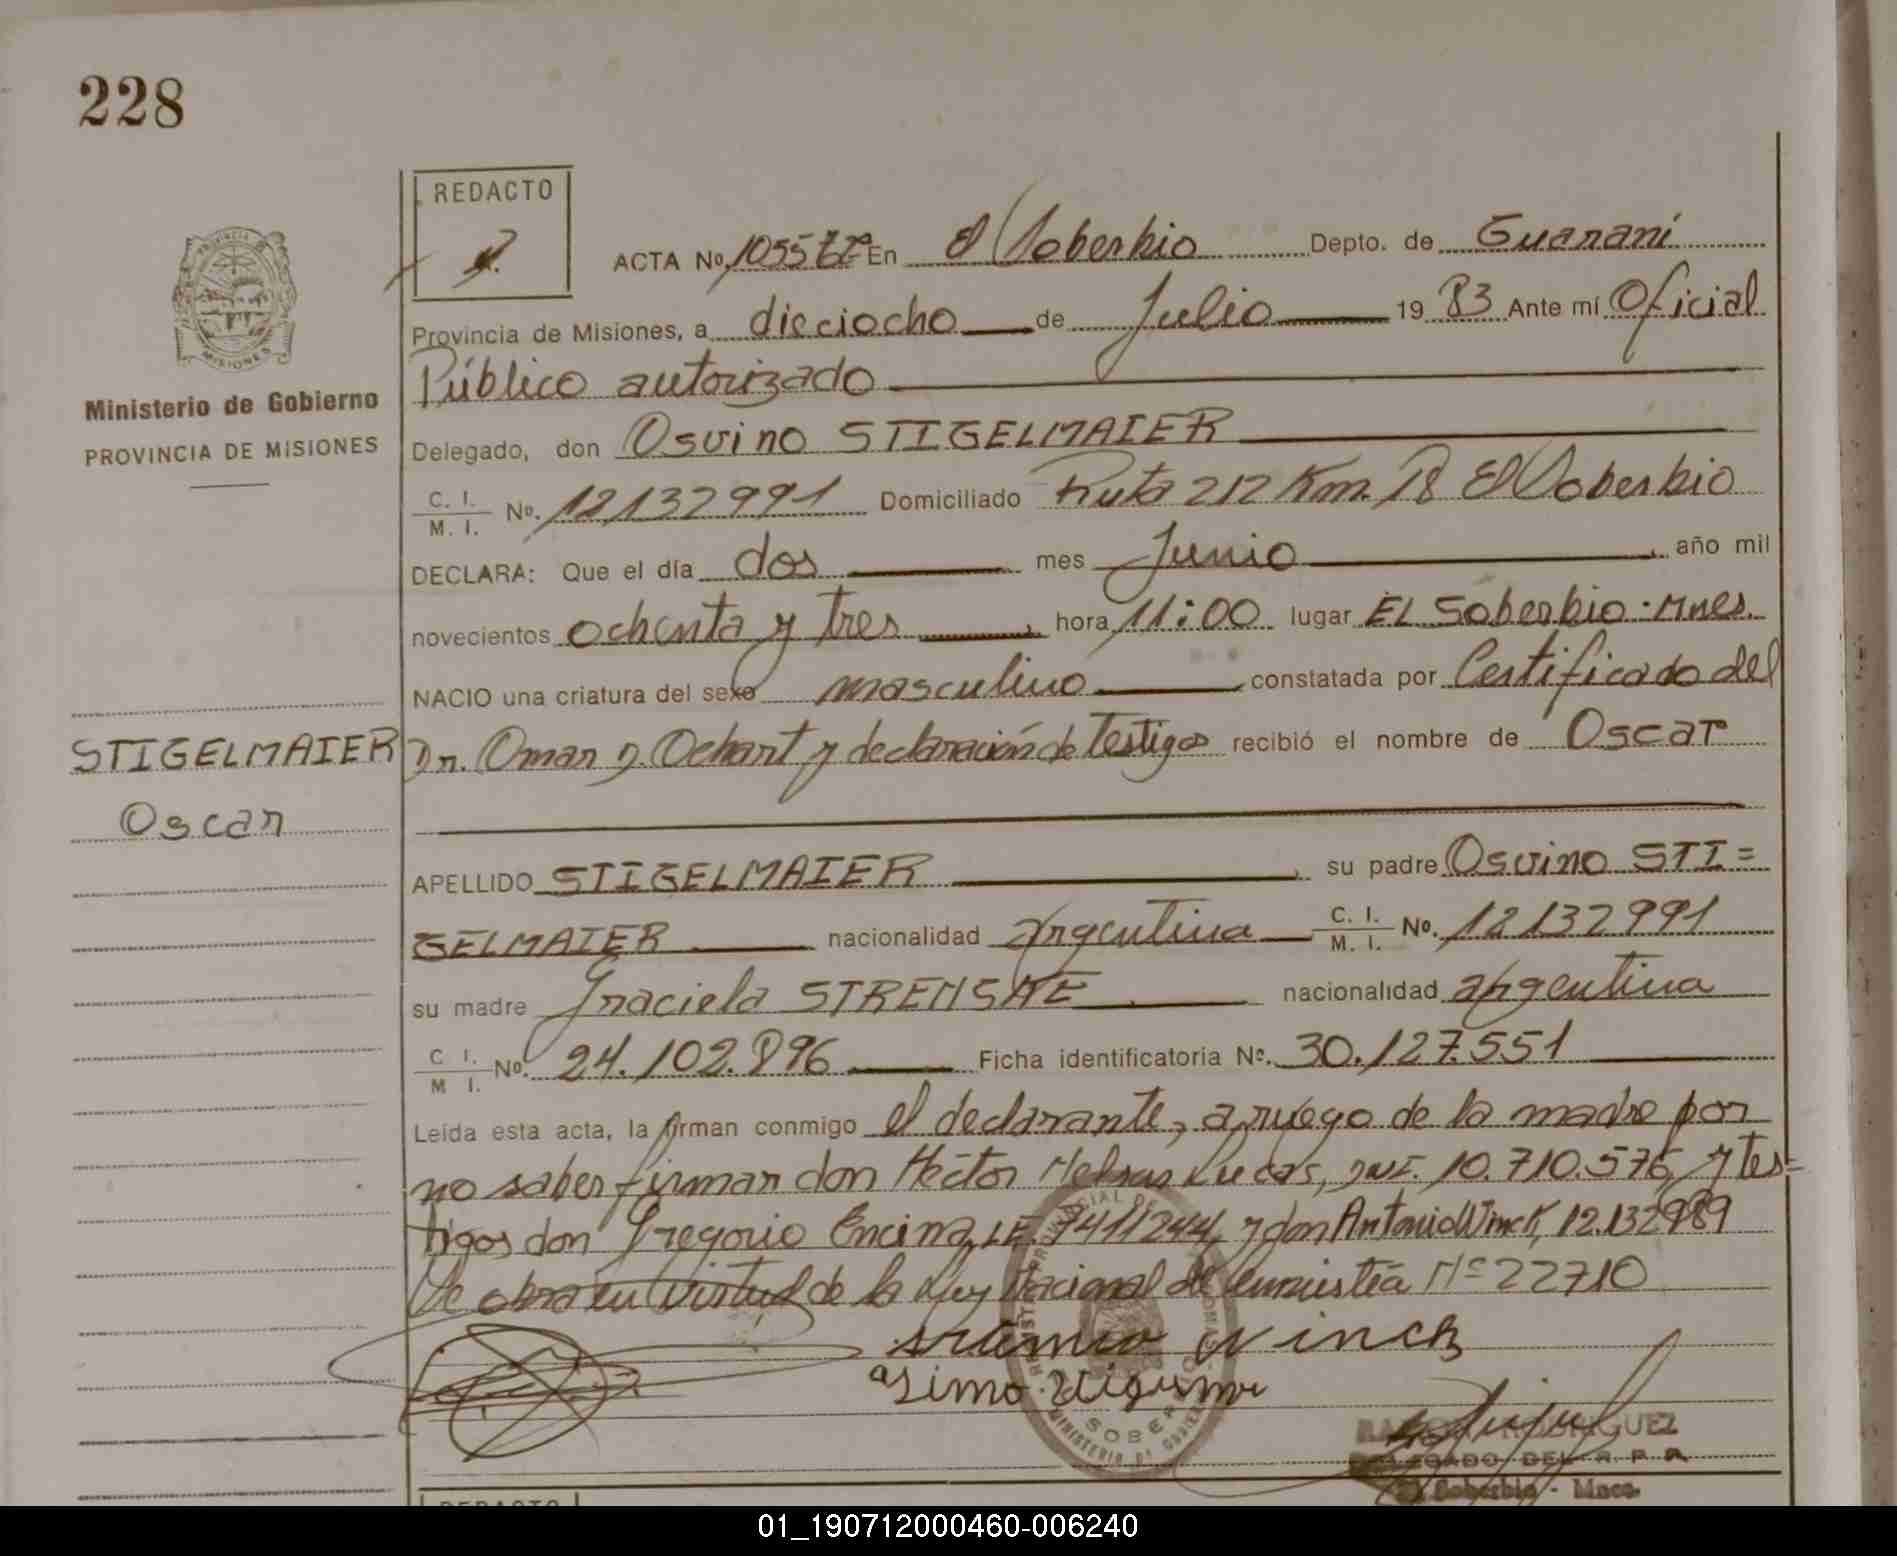 228
REDACTO
ACTA No. En El Soberbio Depto. de Guaraní
Provincia de Misiones, a dieciocho de Julio 19 83 Ante mí Oficial
Público autorizado
Ministerio de Gobierno
PROVINCIA DE MISIONES
Delegado, don Osvino STIGELMAIER
C. I. M. I. No. 12132991 Domiciliado Ruta 212 Km. 18 El Soberbio
DECLARA: Que el día dos mes Junio año mil
novecientos ochenta y tres, hora 11:00 lugar EL Soberbio - Mnes.
NACIO una criatura del sexo masculino, constatada por Certificado del
STIGELMAIER
Oscar
Dr. Omar D. Ochart y declaración de Testigos recibió el nombre de Oscar
APELLIDO STIGELMAIER, su padre Osvino STI=
GELMAIER nacionalidad argentina C. I. M. I. No. 12132991
su madre Graciela nacionalidad argentina
C I. M I. No. 24.102.896 Ficha identificatoria No. 30.127.551
Leída esta acta, la firman conmigo el declarante, a ruego de la madre por
no saber firmar don Héctor Nelson Lucas, 10.710.576, y tes=
tigos don Gregorio Encina, LE. 7411244, y don Antonio Winck, 12.132989
de la Ley Nacional de Nº 22710
Winck
REGISTRO PROVINCIAL DE
MINISTERIO DE GOBIERNO
SOBERBIO
RODRIGUEZ
DELEGADO DEL R. P. P.
El Soberbio - Mnes.
REDACTO
01_190712000460-006240